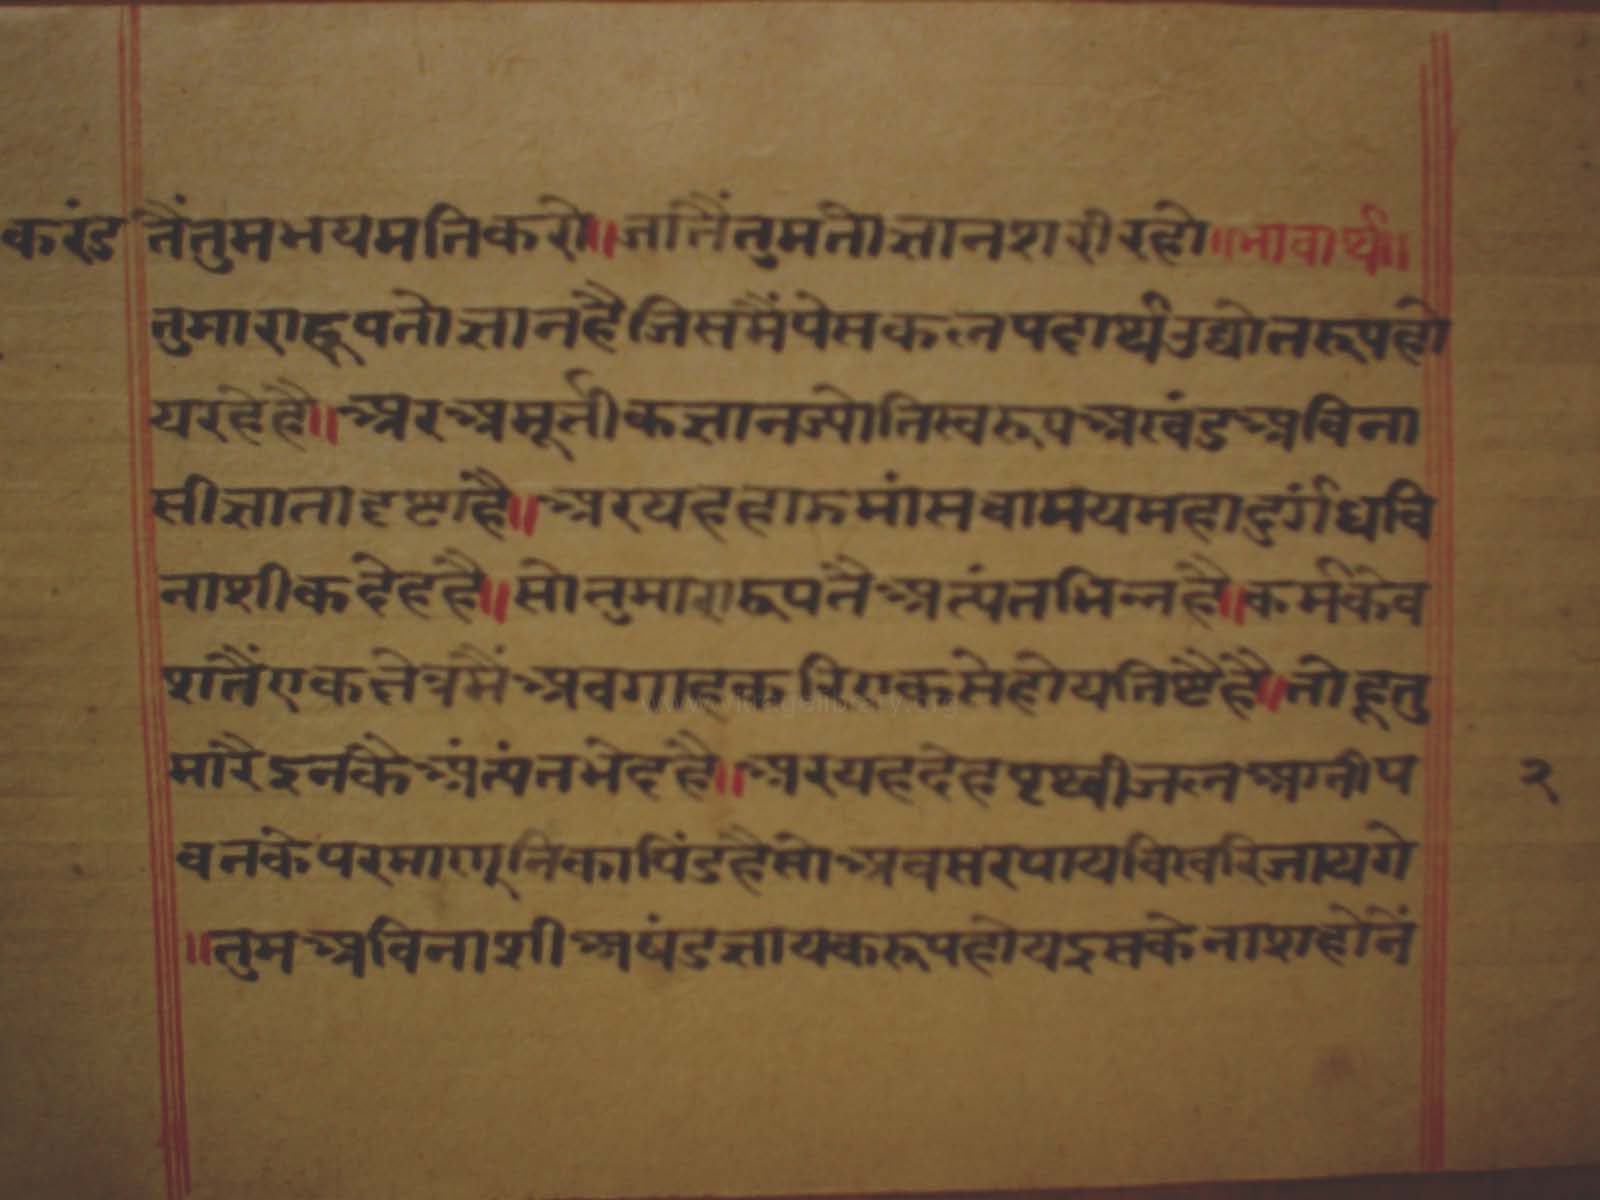 करंड तैंतुमभयमतिकरो॥जातैंतुमतोज्ञानशरीरहो॥भावार्थ॥
तुमारारूपतोज्ञानहैजिसमैंपेसकलपदार्थउद्योतरूपहो
यरहेहै॥अरअमूर्तीकज्ञानज्योतिस्वरूपअखंडअविना
सीज्ञातादृष्टाहै॥अरयहहाडमांसचाममयमहादुर्गंधवि
नाशीकदेहहै॥सोतुमारारूपतैअत्यंतभिन्नहै॥कर्मकेव
शतैंएकक्षेत्रमैंअवगाहकरिएकसेहोयतिष्टैहै॥तोहूतु
मारैइनकेअंत्यंतभेदहै॥अरयहदेहपृथ्वीजलअग्नीप
वनकेपरमाणूनिकापिंडहैसोअवसरपायविखरिजायगे
॥तुमअविनाशीअषंडज्ञायकरूपहोयइसकेनाशहोनें
२
www.vitragelibrary.org